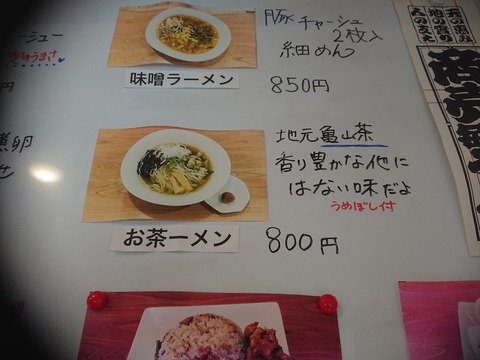 豚チャーシュー
2枚入
細めん
味噌ラーメン
850円
ーシュー
円
煮卵
せ
地元亀山茶
香り豊かな他に
はない味だよ
うめぼし付
お茶ーメン
800円
天の恵み
地の香り
人の交え